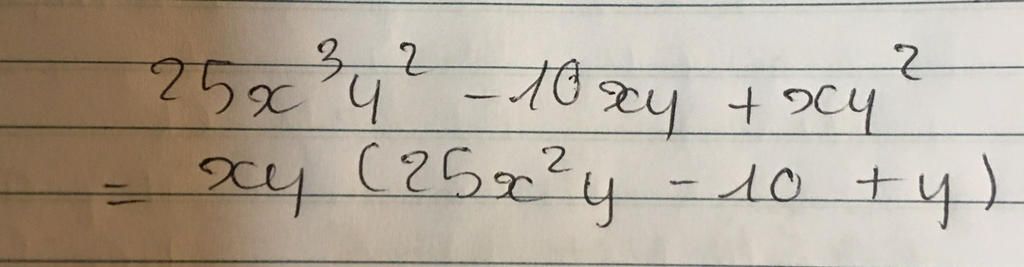 25x³y² - 10xy + xy²
= xy (25x²y - 10 + y)